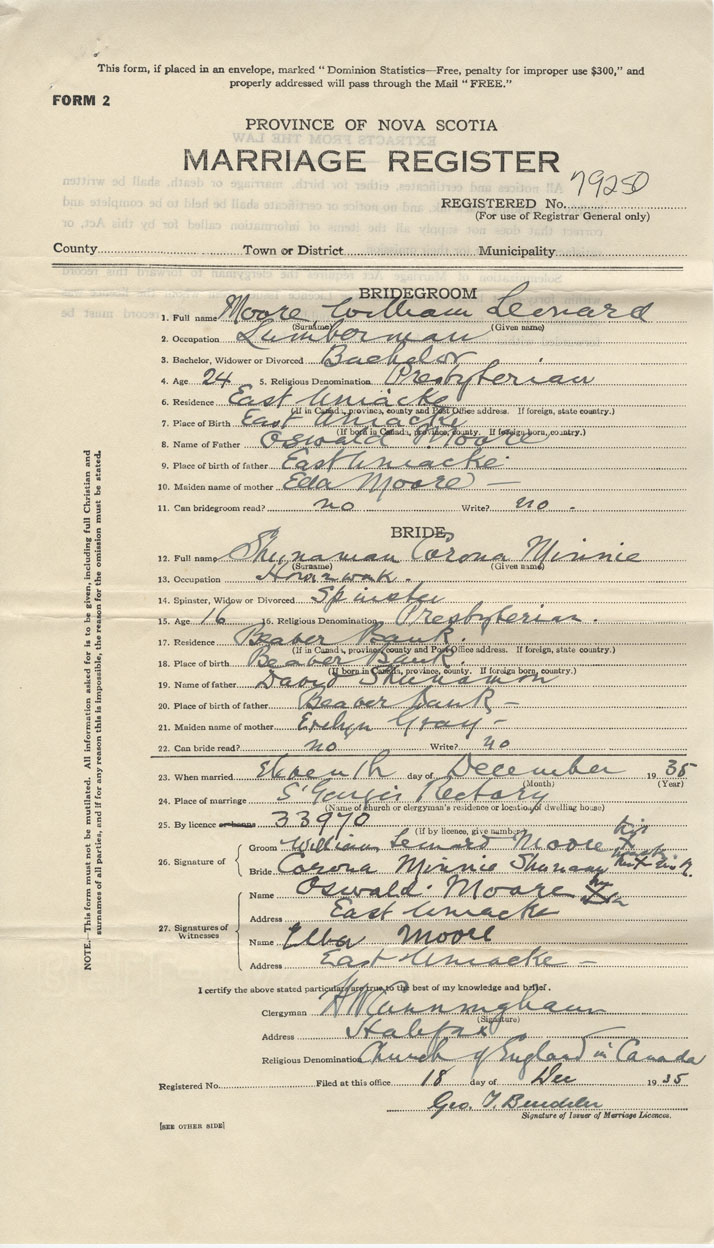 This form, if placed in an envelope, marked "Dominion Statistics—Free, penalty for improper use $300," and
properly addressed will pass through the Mail "FREE."
FORM 2
PROVINCE OF NOVA SCOTIA
MARRIAGE REGISTER
REGISTERED No. 79250
(For use of Registrar General only)
County Town or District Municipality
BRIDEGROOM
1. Full name Moore William Leonard
(Surname) (Given name)
2. Occupation Lumberman
3. Bachelor, Widower or Divorced Bachelor
4. Age 24 5. Religious Denomination Presbyterian
6. Residence East Uniacke
(If in Canada, province, county and Post Office address. If foreign, state country.)
7. Place of Birth East Uniacke
(If born in Canada, province, county. If foreign born, country.)
8. Name of Father Oswald Moore
9. Place of birth of father East Uniacke
10. Maiden name of mother Eda Moore —
11. Can bridegroom read? no Write? no -
BRIDE
12. Full name Shunaman Corona Minnie
(Surname) (Given name)
13. Occupation
14. Spinster, Widow or Divorced Spinster
15. Age 16 16. Religious Denomination Presbyterian.
17. Residence Beaver Bank.
(If in Canada, province, county and Post Office address. If foreign, state country.)
18. Place of birth Beaver Bank.
(If born in Canada, province, county. If foreign born, country.)
19. Name of father David Shunamon
20. Place of birth of father Beaver Bank —
21. Maiden name of mother Evelyn Gray -
22. Can bride read? no Write? no
23. When married Eleventh day of December 1935
(Month) (Year)
24. Place of marriage St Georges Rectory
(Name of church or clergyman's residence or location of dwelling house)
25. By licence or banns 33970
(If by licence, give number)
26. Signature of
Groom William Leonard Moore his X
Bride Corona Minnie Shunaman
27. Signatures of Witnesses
Name Oswald Moore
Address East Uniacke
Name Elba Moore
Address East Uniacke —
I certify the above stated particulars are true to the best of my knowledge and belief.
Clergyman H W Cunningham
(Signature)
Address Halifax
Religious Denomination Church of England in Canada
Registered No. Filed at this office 18 day of Dec 1935
Geo. T.
Signature of Issuer of Marriage Licences.
[SEE OTHER SIDE]
NOTE.—This form must not be mutilated. All information asked for is to be given, including full Christian and
surnames of all parties, and if for any reason this is impossible, the reason for the omission must be stated.